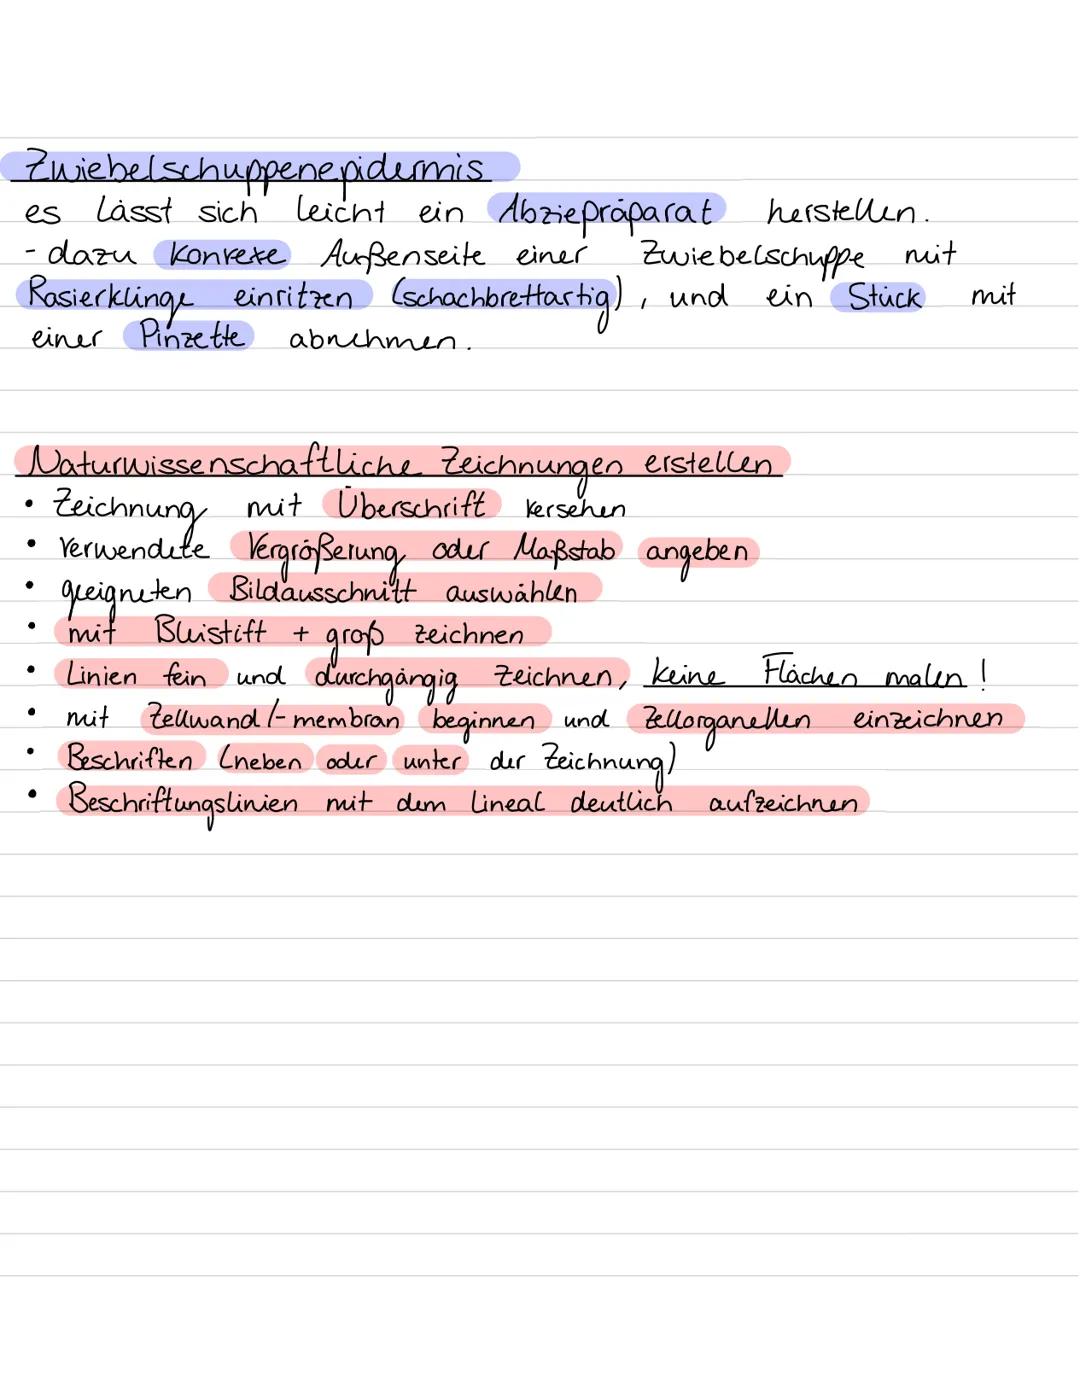 Zwiebelschuppenepidermis
es lässt sich leicht ein Abziepräparat herstellen.
- dazu konvexe Außenseite einer Zwiebelschuppe mit
Rasierklinge einritzen (schachbrettartig), und ein Stück mit
einer Pinzette abnehmen.
Naturwissenschaftliche Zeichnungen erstellen
• Zeichnung mit Überschrift versehen
• verwendete Vergrößerung oder Maßstab angeben
• geeigneten Bildausschnitt auswählen
• mit Bleistift + groß zeichnen
• Linien fein und durchgängig zeichnen, keine Flächen malen!
• mit Zellwand/-membran beginnen und Zellorganellen einzeichnen
• Beschriften (neben oder unter der Zeichnung)
• Beschriftungslinien mit dem Lineal deutlich aufzeichnen